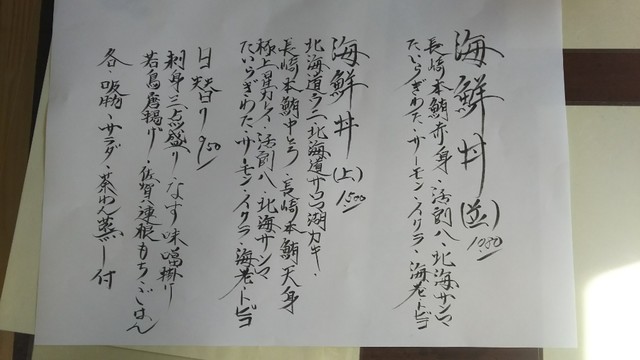 海鮮丼(並)1080
長崎本鮪赤身・活〆八・北海サンマ
たいらぎわた・サーモン・イクラ・海老・トビコ
海鮮丼(上)1500
北海道ウニ・北海道サロマ湖カキ・
長崎本鮪中とろ・長崎本鮪天身
極上星カレイ・活〆八・北海サンマ
たいらぎわた・サーモン・イクラ・海老・トビコ
日替り 950
刺身三点盛り・なす味噌掛け
若鳥唐揚げ・佐賀蓮根もち・ごはん
各・吸物・サラダ・茶わん蒸し付